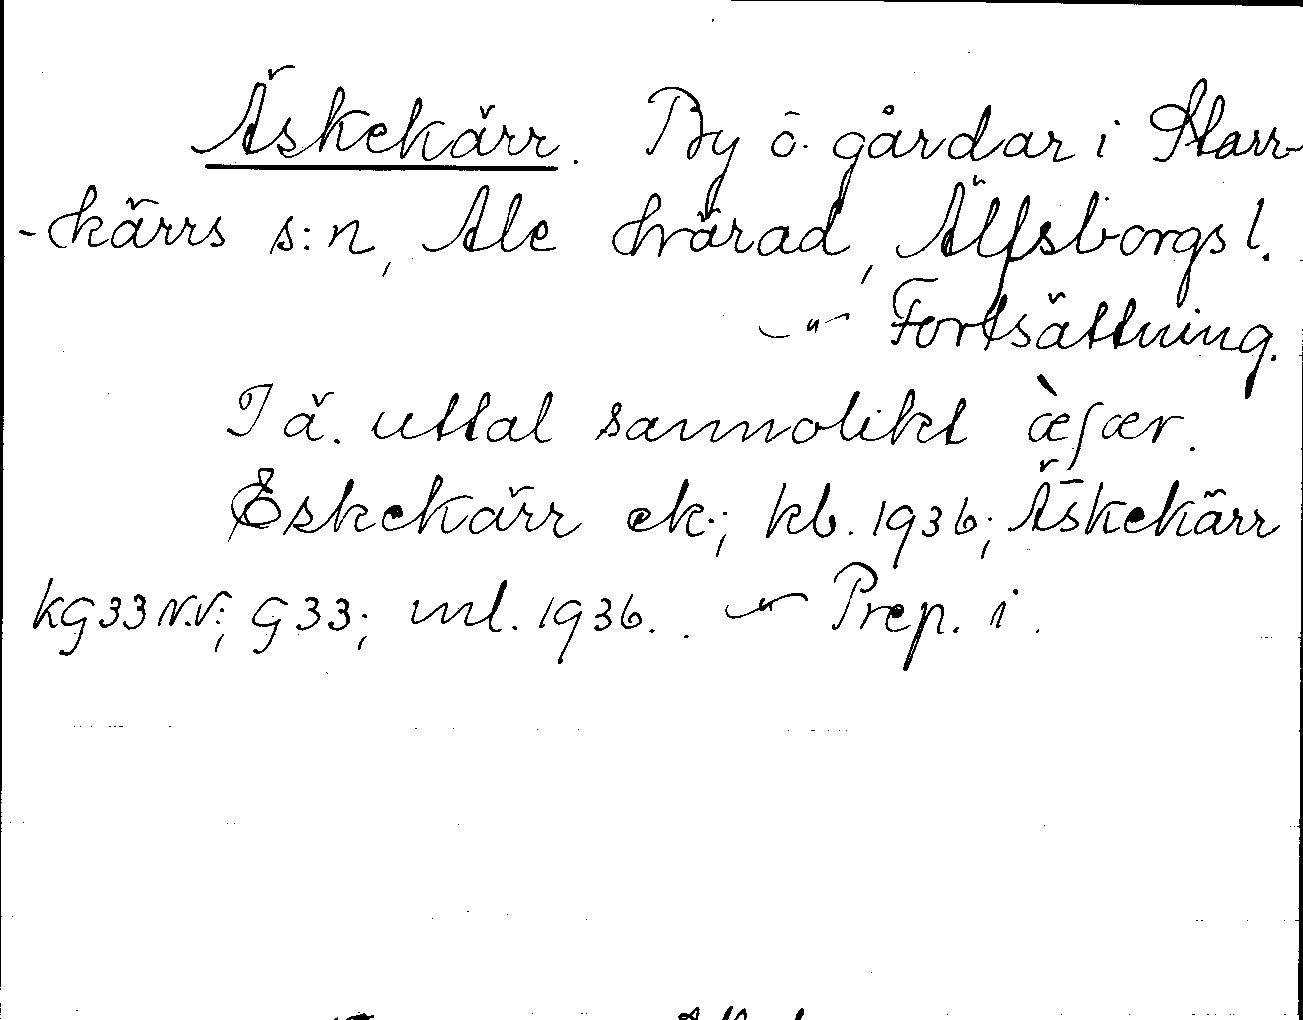 Äskekärr. By o. gårdar i Starr-
-kärrs s:n, Ale härad, Älfsborgs l.
—"— Fortsättning.
I ä. uttal sannolikt æ̀ʃær.
Eskekärr ek.; kb. 1936; Äskekärr
kg33 N.V.; g33; ml. 1936. . —"— Prep. i.